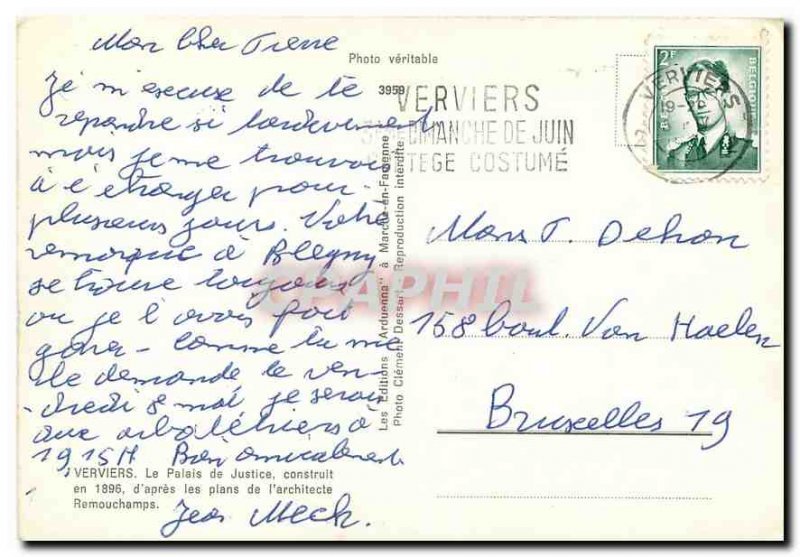 Mon cher Pierre
Je m'excuse de te
repondre si tardivement
mais je me trouvais
à l'étranger pour
plusieurs jours. Votre
remorque à Blegny
se trouve toujours
ou je l'avais fait
garer - comme tu me
le demande le ven-
dredi 8 mai je serai
aux arbaléthiers à
1915H Bien amicalement
VERVIERS. Le Palais de Justice, construit
en 1896, d'après les plans de l'architecte
Remouchamps.
Jean Mech.
Photo véritable
3959
VERVIERS
DIMANCHE DE JUIN
TEGE COSTUMÉ
Les Editions "Arduenna" à Marche-en-Famenne
Photo Clément Dessart Reproduction interdite
2F
BELGIQUE
VERVIERS
CPAPHIL
Mons P. Dehon
158 boul. Van Haelen
Bruxelles 19